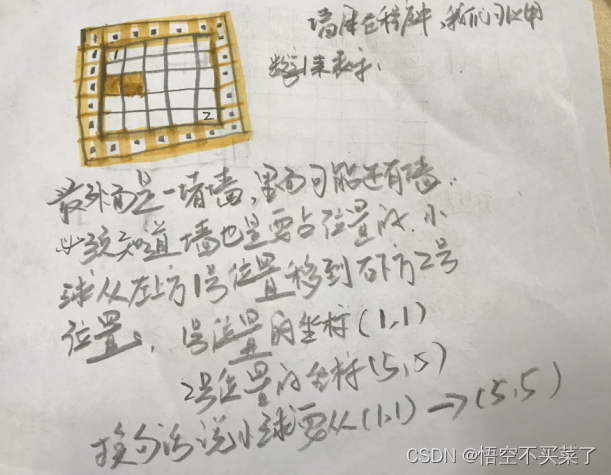 墙在程序中,我们可以用
数字1来表示.
1
2
最外面是一堵墙,里面可能还有墙.
必须知道墙也是要占位置的.小
球从左上方1号位置移到右下方2号
位置。1号位置的坐标(1,1)
2号位置的坐标(5,5)
换句话说小球要从(1,1)→(5,5)
CSDN @悟空不买菜了